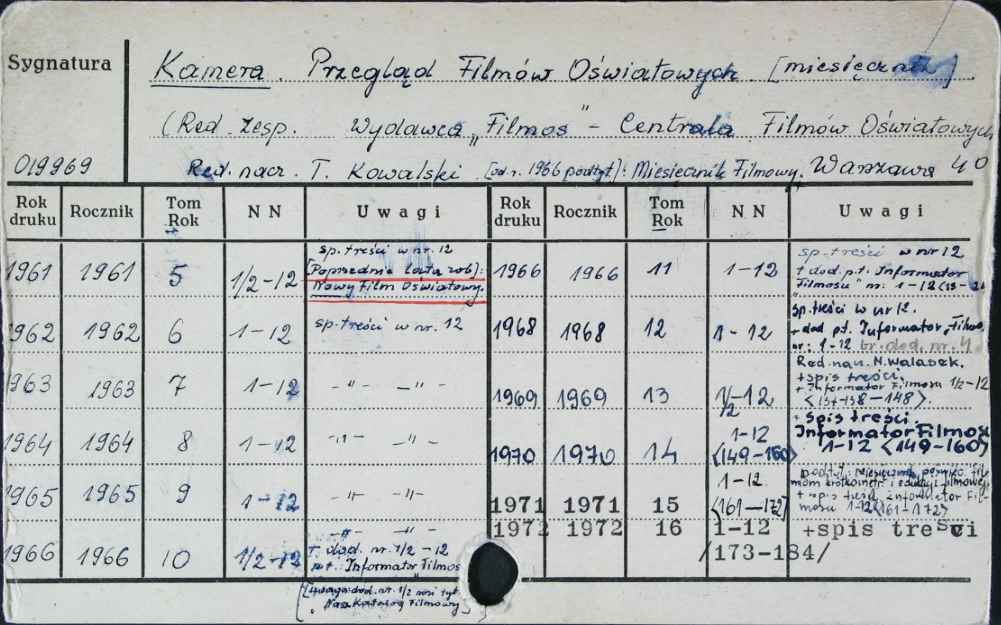 Sygnatura
Kamera. Przegląd Filmów Oświatowych. [miesięcznik]
(Red. zesp. Wydawca „Filmos" - Centrala Filmów Oświatowych
019969 Red. nacz. T. Kowalski [od r. 1966 podtyt]: Miesięcznik Filmowy. Warszawa 40
Rok druku Rocznik Tom Rok N N Uwagi Rok druku Rocznik Tom Rok N N Uwagi
1961 1961 5 1/2-12 sp. treści w nr. 12
[Poprzednie lata zob]:
Nowy Film Oświatowy.
1962 1962 6 1-12 sp. treści w nr. 12
1963 1963 7 1-12 -"- -"-
1964 1964 8 1-12 -"- -"-
1965 1965 9 1-12 -"- -"-
1966 1966 10 1/2-12 -"- -"-
+ dod. nr. 1/2-12
pt.: Informator Filmos
[Uwaga: dod. nr. 1/2 nosi tyt.
Nasz Katalog Filmowy]
1966 1966 11 1-12 sp. treści w nr 12
+ dod. p.t. Informator
Filmosu" nr: 1-12
1968 1968 12 1-12 sp. treści w nr 12.
+ dod pt. Informator „Filmo
nr: 1-12 br. dod. nr. 4.
Red. nacz. N. Walasek.
1969 1969 13 1/2-12 + spis treści.
+ Informator Filmosu 1/2-12
<137-138-148>.
1970 1970 14 1-12 <149-160> + spis treści.
Informator Filmosu
1-12 <149-160>
1971 1971 15 1-12 (161-172) podtyt.: miesięcznik poświęc. fil-
mom krótkometr. i edukacji filmowej
+ spis treści, Informator Fil-
mosu 1-12<161-172>
1972 1972 16 1-12 +spis treści
/173-184/